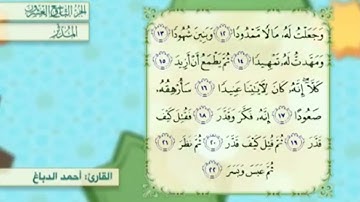 الجزء التاسع والعشرون
المدثر
وَجَعَلْتُ لَهُۥ مَالًا مَّمْدُودًا ١٢ وَبَنِينَ شُهُودًا ١٣
وَمَهَّدتُّ لَهُۥ تَمْهِيدًا ١٤ ثُمَّ يَطْمَعُ أَنْ أَزِيدَ ١٥
كَلَّآ ۖ إِنَّهُۥ كَانَ لِءَايَٰتِنَا عَنِيدًا ١٦ سَأُرْهِقُهُۥ
صَعُودًا ١٧ إِنَّهُۥ فَكَّرَ وَقَدَّرَ ١٨ فَقُتِلَ كَيْفَ
قَدَّرَ ١٩ ثُمَّ قُتِلَ كَيْفَ قَدَّرَ ٢٠ ثُمَّ نَظَرَ ٢١
ثُمَّ عَبَسَ وَبَسَرَ ٢٢
القارئ: أحمد الدباغ